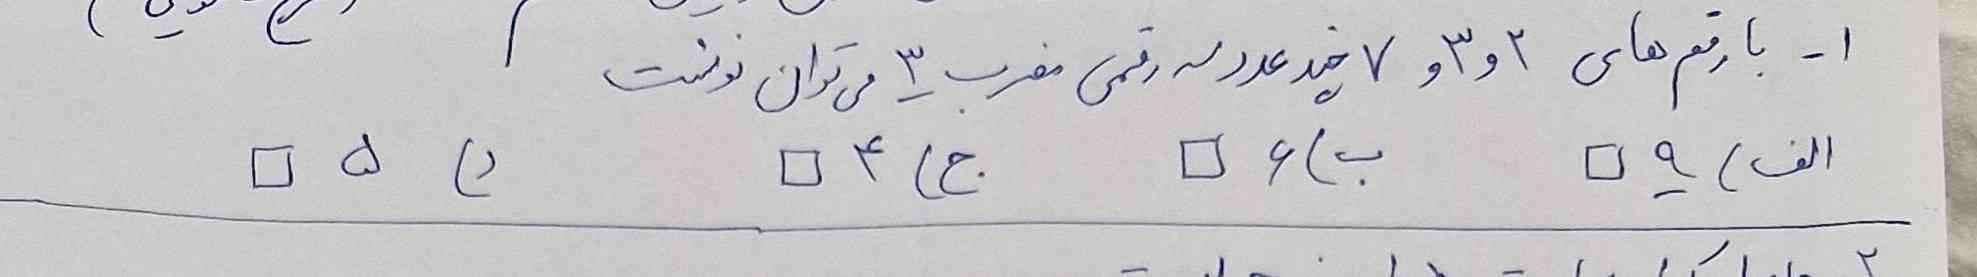 ۱- با رقم های ۲ و ۳ و ۷ چند عدد سه رقمی مضرب ۳ می توان نوشت
الف) ۹ □ ب) ۶ □ ج) ۴ □ د) ۵ □